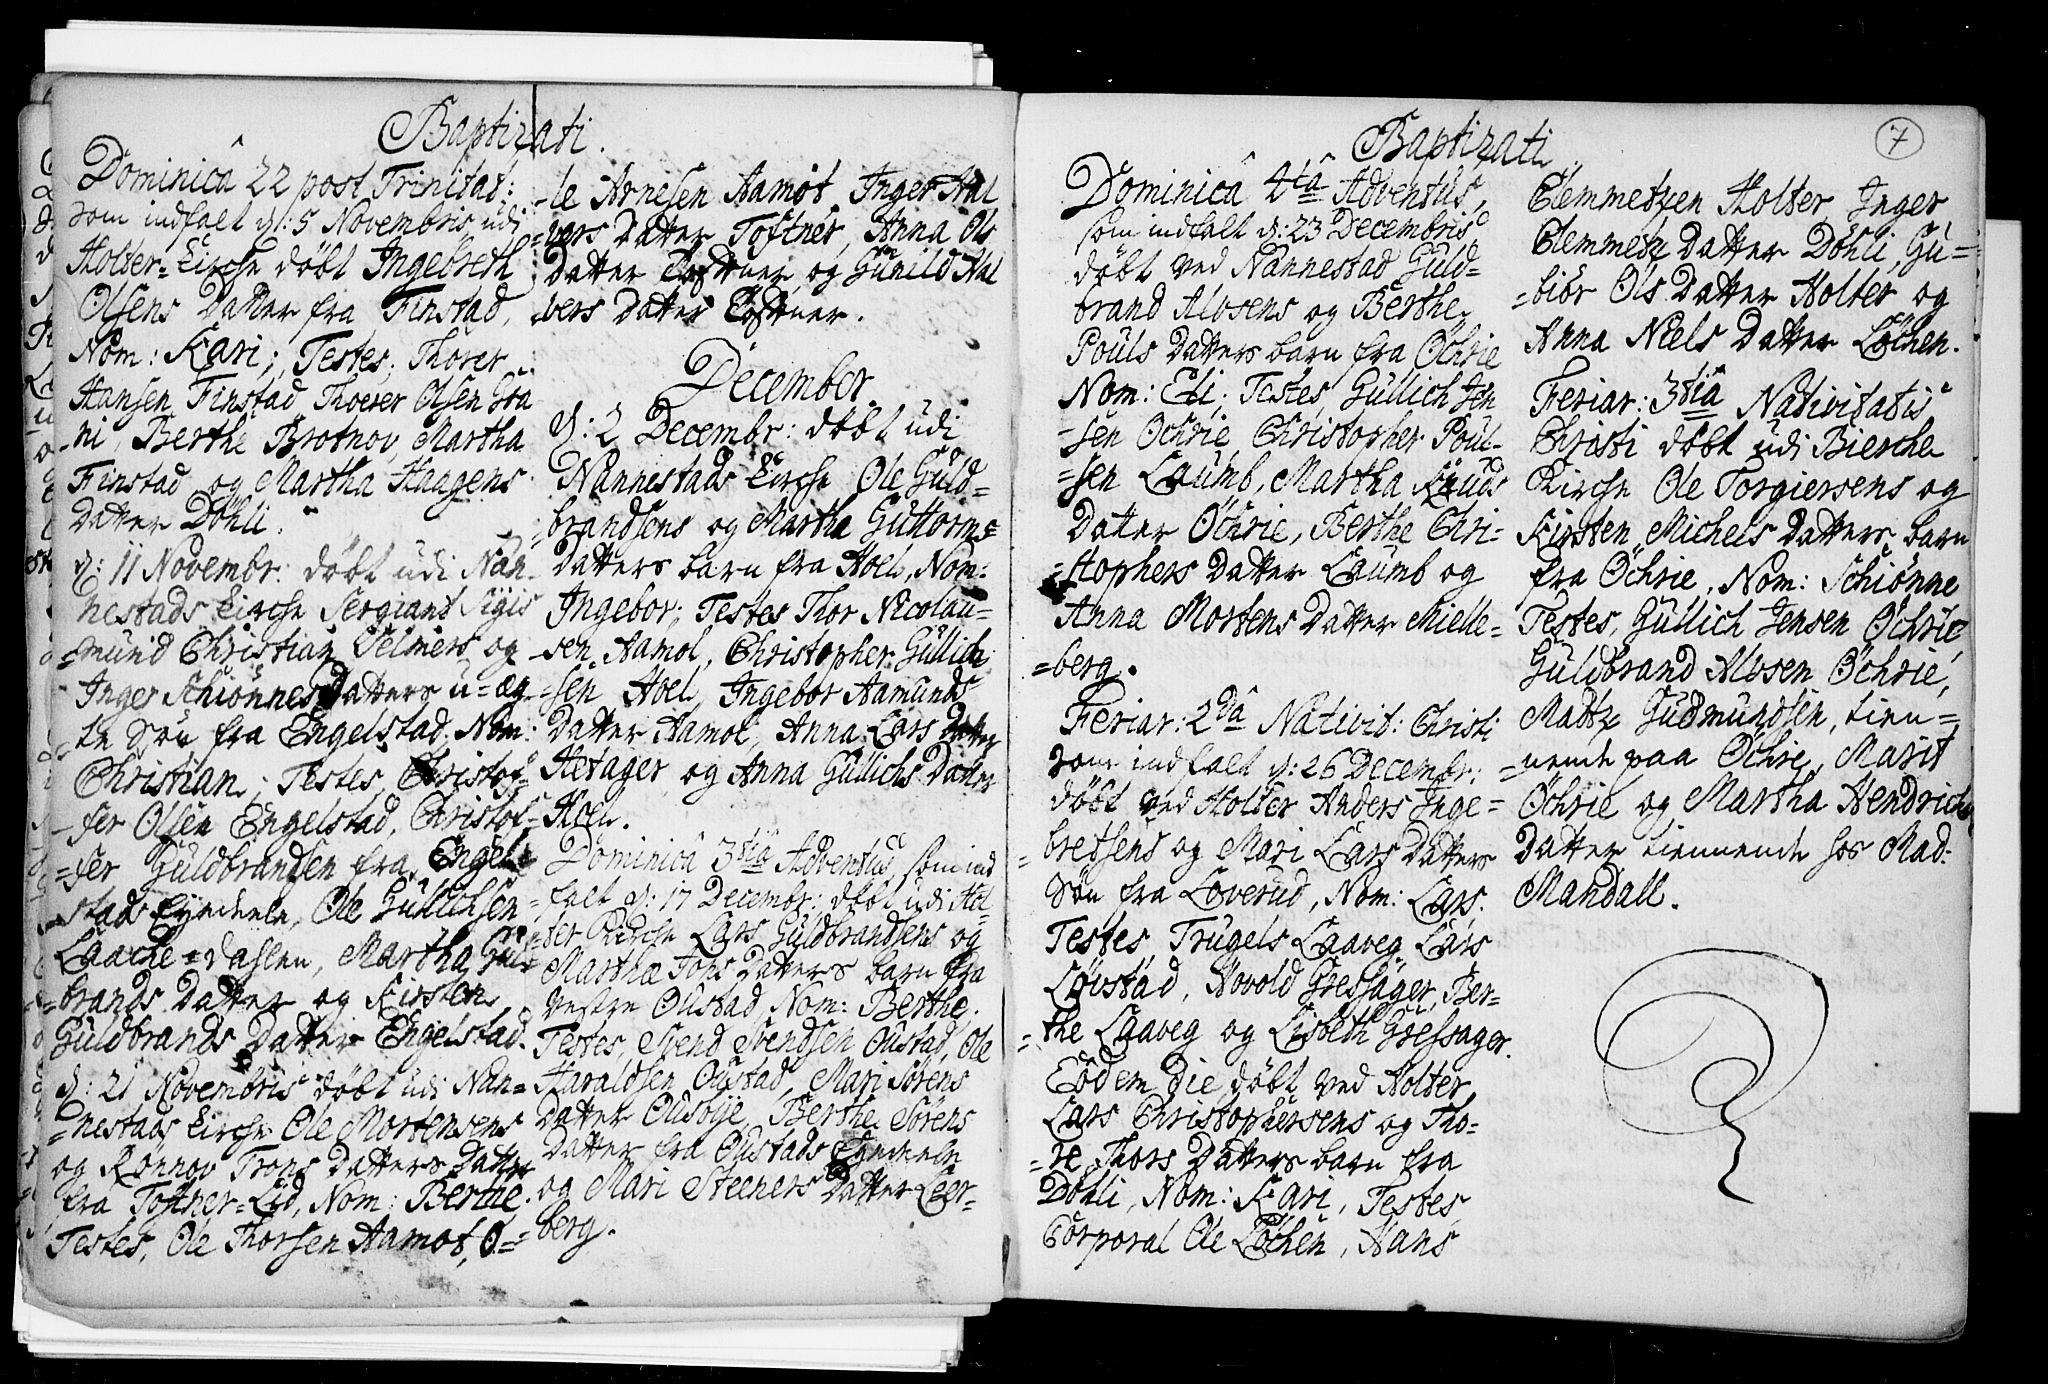 Baptizati.
Dominicâ 22 post Trinitat:
som indfalt d: 5 Novembris udi
Holter=Kirche döbt Ingebreth
Olsens Datter fra Finstad,
Nom: Kari; Testes, Thorer
Hansen Finstad Thorer Olsen
ni, Berthe Brotnov, Martha
Finstad og Martha Haagens
Datter Döhli.
d: 11 Novembr: döbt udi Nan-
nestads Kirche Sergiant Sigis
=mund Christian Velmers og
Inger Schiönnes Datters u=æg
te Sön fra Engelstad. Nom:
Christian; Testes, Christof-
fer Olsen Engelstad, Christof-
=fer Guldbrandsen fra Engel=
stads Eyechele, Ole Gullichsen
Laache=dahlen, Martha Gul=
=brands Datter og Kirsten
Guldbrands Datter Engelstad.
d: 21 Novembris döbt udi Nan=
=nestads Kirche Ole Mortensens
og Ronnov Trons Datters Datter
fra Toftner=Eid, Nom: Berthe.
Testes, Ole Thorsen Aamot, O=
-le Arnesen Aamot, Inger Hal
=vers Datter Toftner, Anna Ols
Datter Toftner og Gunild Hal
vers Datter Toftner.
December.
d: 2 Decembr: döbt udi
Nannestads Kirche Ole Guld=
=brandsens og Martha Guttorms=
Datters barn fra Hoel, Nom:
Ingebor; Testes Thor Nicolau-
sen Aamot, Christopher Gullich
=sen Hoel, Ingebor Aamunds
Datter Aamot, Anna Lars Datter
Hetager og Anna Gullichs Datter
Hoel.
Dominicâ 3tiâ Adventus, som ind
=falt d: 17 Decembr: döbt udi Hol-
ter Kirche Lars Guldbrandsens og
Marthæ Johs Datters barn fra
vestre Oustad, Nom: Berthe.
Testes, Svend Svendsen Oustad, Ole
Haraldsen Oustad, Mari Sörens
Datter Ousöye, Berthe Sörens
Datter fra Oustads Eyechele
og Mari Steeners Datter Leer-
berg.
7
Baptizati
Dominicâ 4tâ Adventus,
som indfalt d: 23 Decembris
döbt ved Nannestad Guld=
brand Alvsens og Berthe
Pouls Datters barn fra Öchrie
Nom: Eli; Testes, Gullich Jen
=sen Öchrie, Christopher Poul-
=sen Laumb, Martha Knuds
Datter Öchrie, Berthe Chri-
=stophers Datter Laumb og
Anna Mortens Datter Mielle=
=berg.
Feriar: 2dâ Nativit: Christi
som indfalt d: 26 Decembr:
döbt ved Holter Anders Inge=
=bretsens og Mari Lars Datters
Sön fra Loverud, Nom: Lars.
Testes Trugels Laaveg, Lars
Loustad, Hovold Gressager, Ber-
=the Laaveg og Lisbeth Gressager.
Eodem Die döbt ved Holter
Lars Christophersens og Tho-
=re Thors Datters barn fra
Döhli, Nom: Kari, Testes,
Corporal Ole Löchen, Hans
Clemmetzen Holter, Inger
Clemmetz Datter Döhli, Gu=
=biör Ols Datter Holter og
Anna Niels Datter Löchen.
Feriar: 3tiâ Nativitatis
Christi döbt udi Bierche
Kirche Ole Torgiersens og
Kirsten Michels Datters barn
fra Öchrie, Nom: Schiönne
Testes, Gullich Jensen Öchrie,
Guldbrand Alvsen Öchrie,
Madtz Gudmundsen, tien=
=nende paa Öchrie, Marit
Öchrie og Martha Hendrichs
Datter tiennende hos Mad:
Mandall.